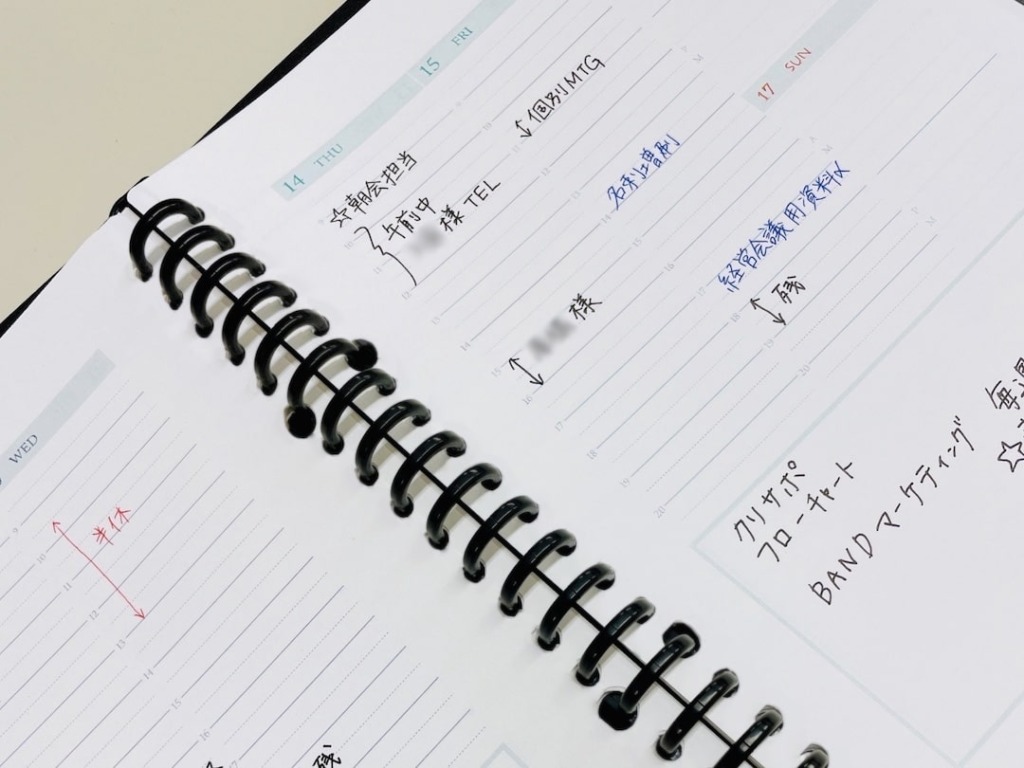 WED
9
10
11
12
13
14
15
16
半休
残
14 THU
☆朝会担当
午前中
様 TEL
10
11
12
13
14
15
16
17
18
19
20
様
15 FRI
個別MTG
10
11
12
13
14
15
16
17
18
19
20
名刺増刷
経営会議用資料〆
残
17 SUN
A
M
P
M
クリサポ
フローチャート
BANDマーケティング
毎週
☆